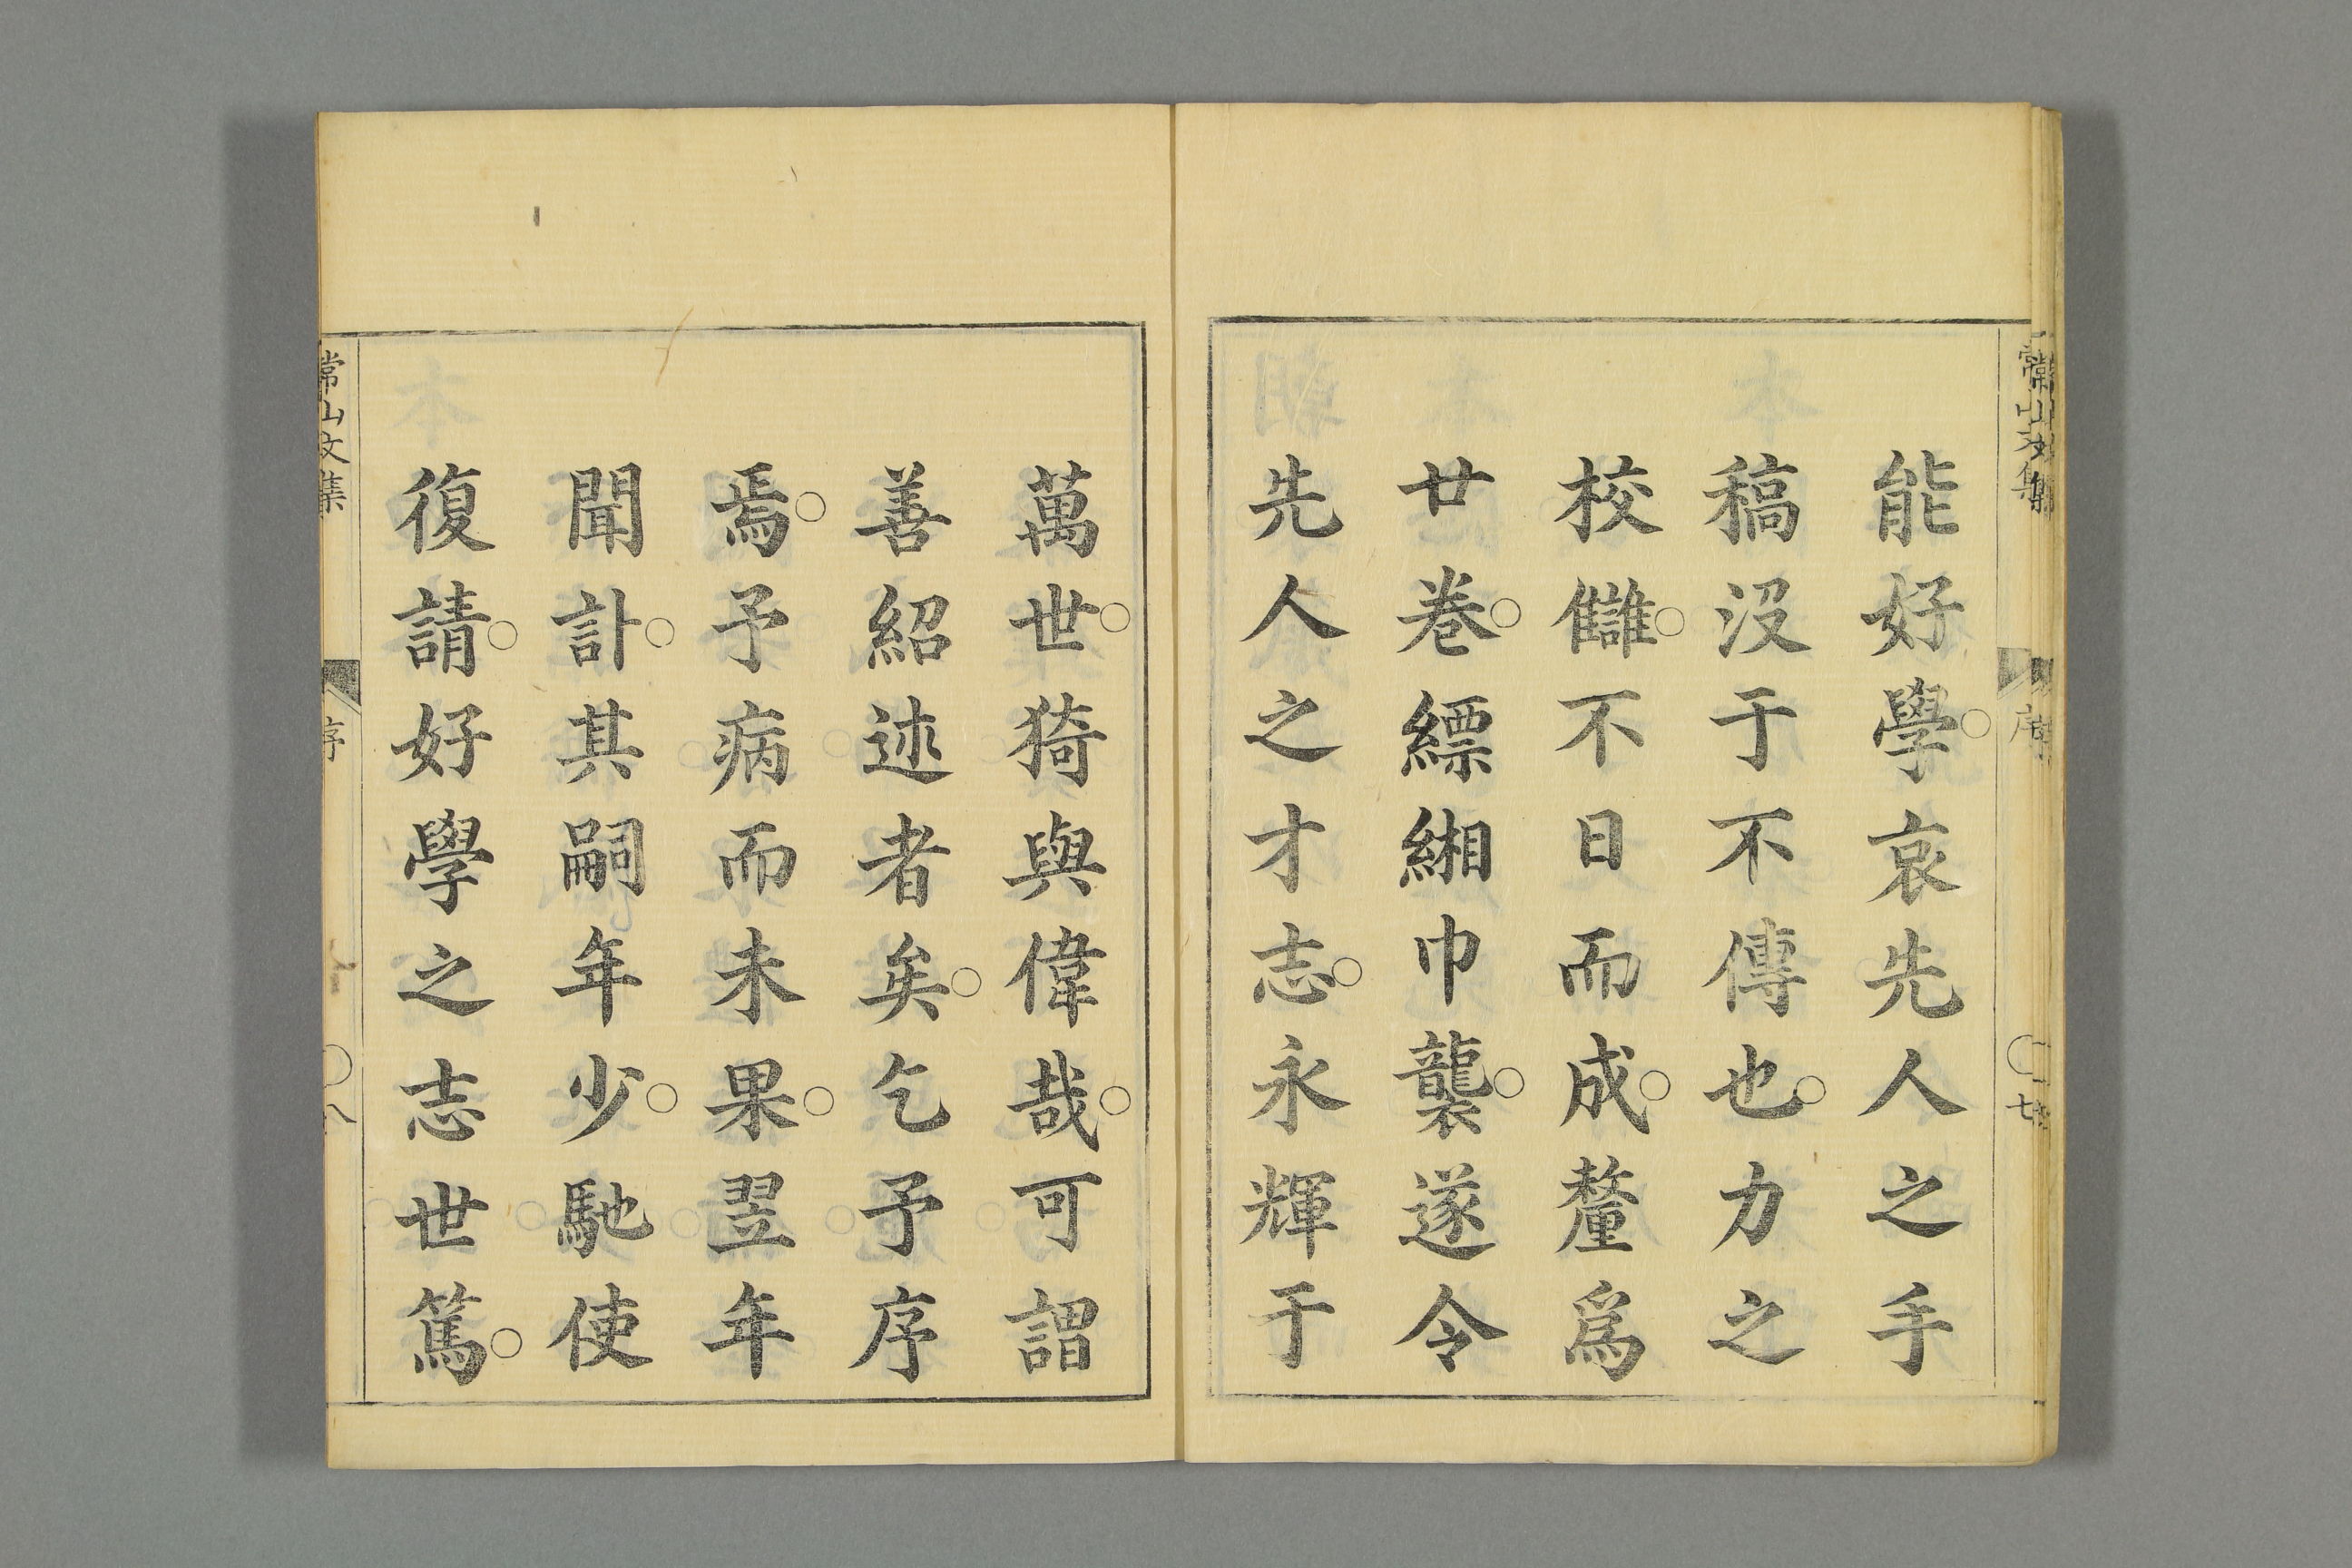 常山文集
序
七
能好學。哀先人之手
稿没于不傳也。力之
校讎。不日而成。釐爲
廿卷。縹緗巾襲。遂令
先人之才志。永輝于
萬世。猗與偉哉。可謂
善紹述者矣。乞予序
焉。予病而未果。翌年
聞訃。其嗣年少。馳使
復請。好學之志世篤。
常山文集
序
八